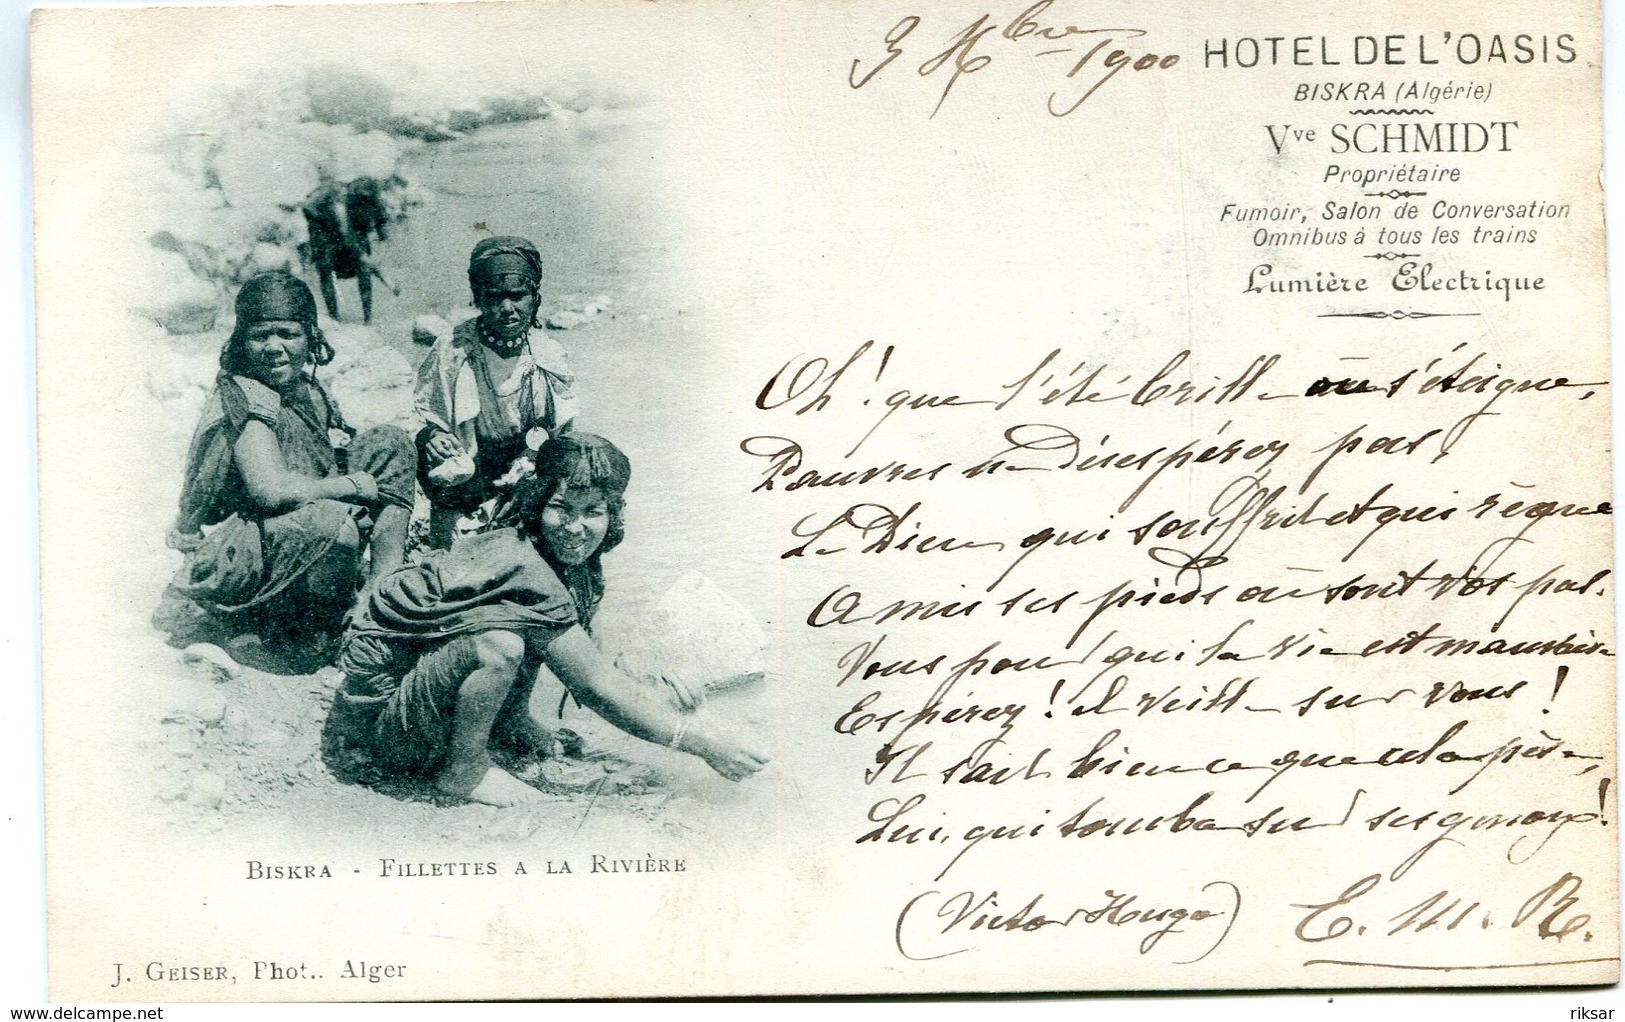 3 Xbre 1900
HOTEL DE L'OASIS
BISKRA (Algérie)
Vve SCHMIDT
Propriétaire
Fumoir, Salon de Conversation
Omnibus à tous les trains
Lumière Electrique
Oh! que l'été brille ou s'éteigne,
Pauvres ne Désespérez pas,
Le Dieu qui souffrit et qui règne
A mis ses pieds où sont vos pas.
Vous pour qui la vie est mauvaise
Espérez! il veille sur vous!
Il sait bien ce que cela pèse,
Lui, qui tomba sur ses genoux!
(Victor Hugo) E. M. R.
BISKRA - FILLETTES A LA RIVIÈRE
J. GEISER, Phot.. Alger
www.delcampe.net
riksar